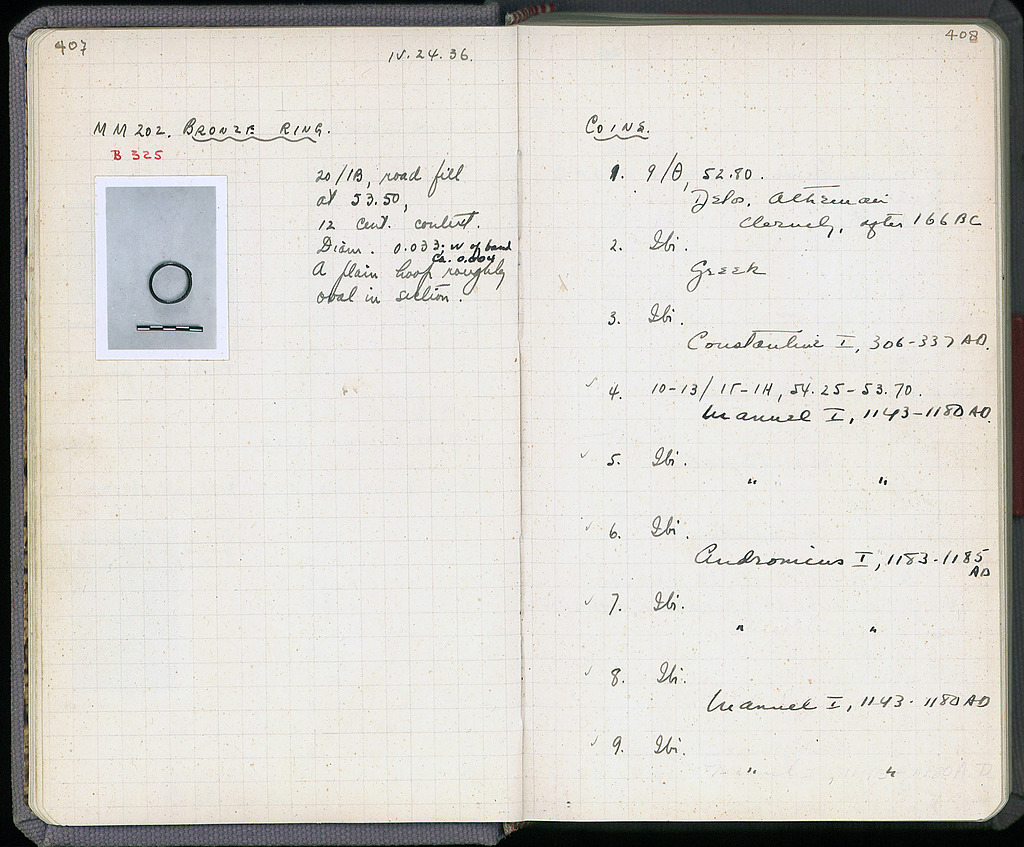 407
IV.24.36.
MM 202. BRONZE RING.
B 325
20/ΙΒ, road fill
at 53.50,
12 cent. context.
Diam. 0.033; W of band
ca. 0.004
A plain hoop roughly
oval in section.
408
COINS.
1. 9/Θ, 52.80.
Delos, Athenian
cleruchy, after 166 BC
2. Ibi.
Greek
3. Ibi.
Constantine I, 306-337 AD.
✓ 4. 10-13/ΙΓ-ΙΗ, 54.25-53.70.
Manuel I, 1143-1180 AD.
✓ 5. Ibi.
" "
✓ 6. Ibi.
Andronicus I, 1183-1185
AD
✓ 7. Ibi.
" "
✓ 8. Ibi.
Manuel I, 1143-1180 AD
✓ 9. Ibi.
" "